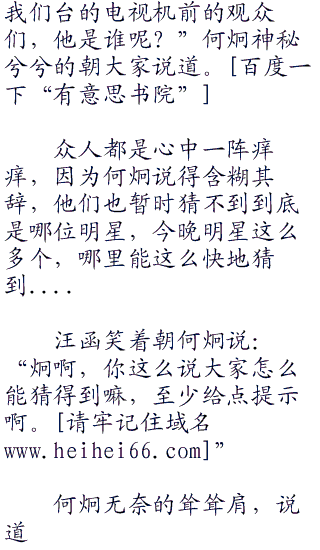 我们台的电视机前的观众
们，他是谁呢？”何炯神秘
兮兮的朝大家说道。[百度一
下“有意思书院”]
众人都是心中一阵痒
痒，因为何炯说得含糊其
辞，他们也暂时猜不到到底
是哪位明星，今晚明星这么
多个，哪里能这么快地猜
到....
汪函笑着朝何炯说：
“炯啊，你这么说大家怎么
能猜得到嘛，至少给点提示
啊。[请牢记住域名
www.heihei66.com]”
何炯无奈的耸耸肩，说
道